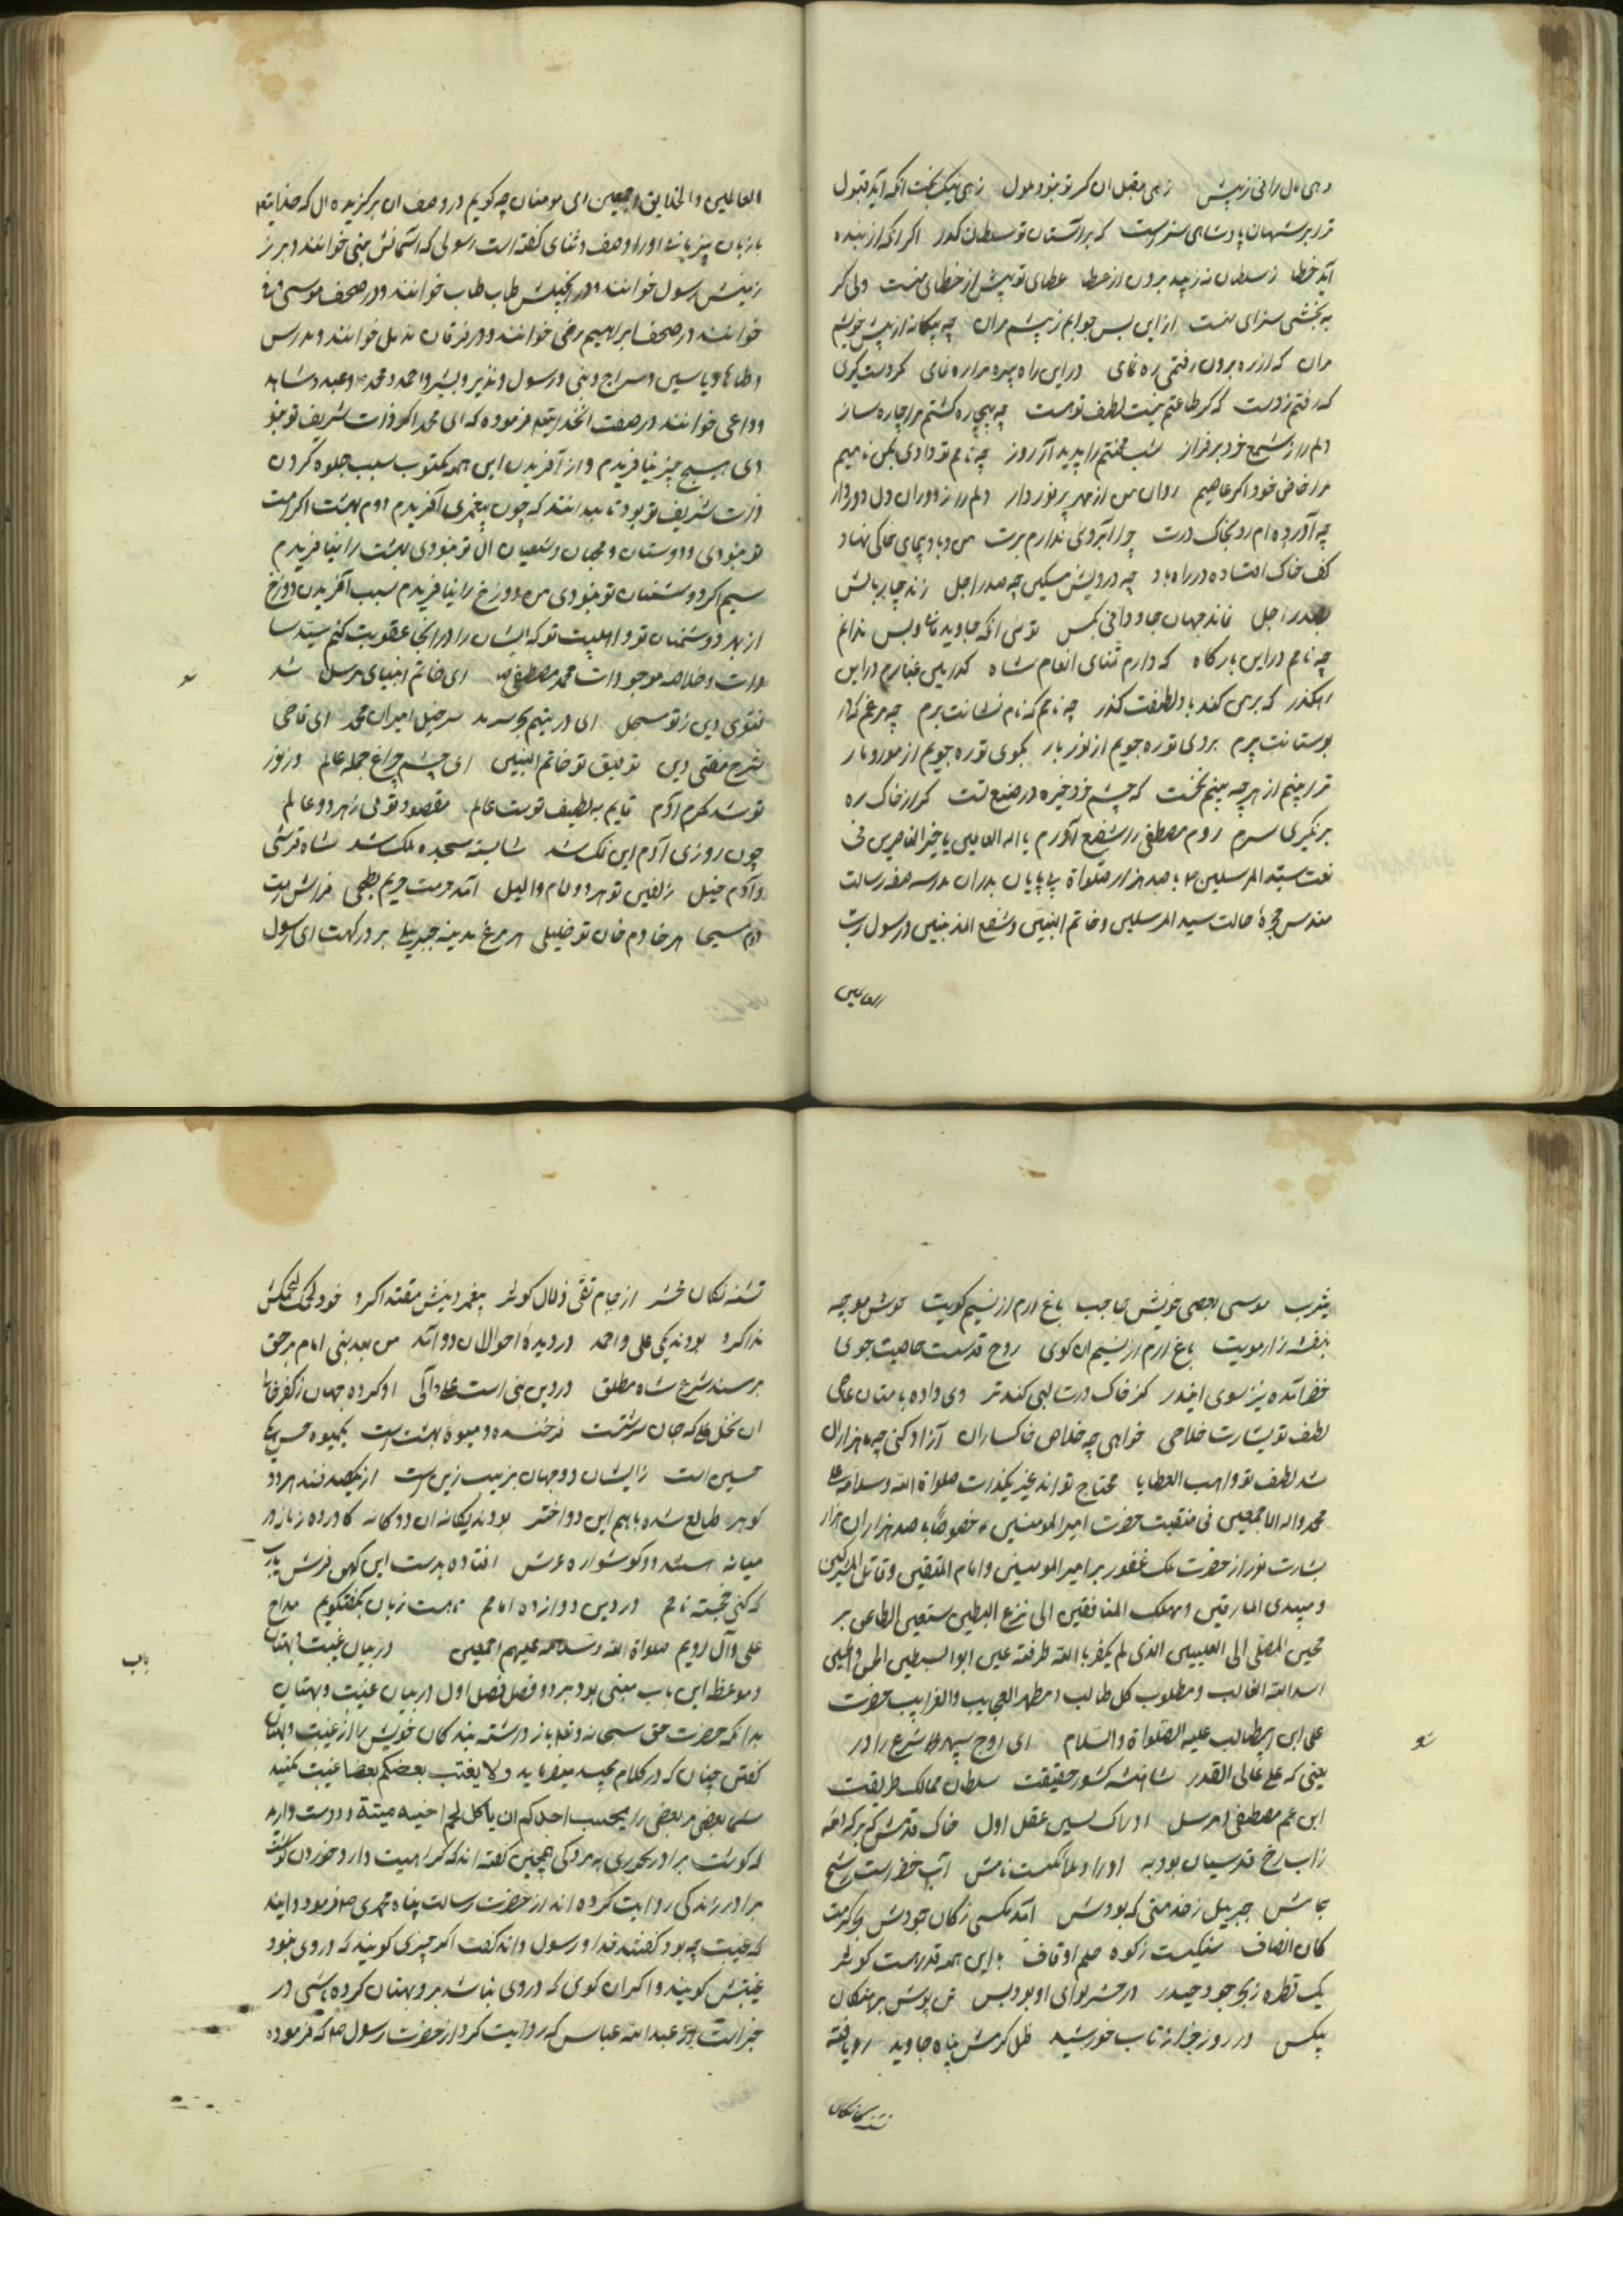 دهی مال رانی ز پیش زهی مقبل ان کز تو نبود ملول زهی نیک بخت انکه آید قبول
ترا بر شهان پادشاهی سزاست که بر آستان تو سلطان کداست اگر آنکه از بنده
آید خطا ز سلطان نه زیبد برون از عطا عطای تو بیش از خطای منست ولی کر
به بخشی سزای منست از این بس جوابم ز پیشم مران چه بیکانه از پیش خویشم
مران که از ره برون رفتم ره نمای در این راه بیره مرا ره نمای کرم دست کیری
که رفتم ز دست که کر طاعتم نیست لطف تو هست چه بیچاره کشتم مرا چاره ساز
دلم را ز شمع خود بر فراز شب محنتم را پدید آر روز چه نامم تو دادی مکن ناامیدم
مرا خاص خود اکر عاصیم روان من از مهر پر نور دار دلم را ز دوران دل دور دار
چه آورده ام رو بخاک درت چرا آبروی ندارم برت من و باد پیمای خاکی نهاد
کف خاک افتاده در راه باد چه درویش مسکین چه صدر اجل زند چار بالش
بصدر اجل نماند جهان جاودانی بکس توئی انکه جاوید مانی و بس ندانم
چه نامم در این بارکاه که دارم ثنای انعام شاه کدایی غبارم در این
رهکذر که برمی کند باد لطفت کذر چه نامم که نام نشانت برم چه مرغم که از
بوستانت پرم بروی تو ره جویم از نور بار بموی تو ره جویم از مور و مار
ترا بینم از هر چه بینم نخست که چشم خرد خیره در صنع تست کر از خاک ره
بر نکیری سرم روم مصطفی را شفیع آورم یا اله العالمین یا خیر الناصرین فی
نعت سید المرسلین ص با صد هزار صلواة بی پایان بدان مدرسه صفه رسالت
مهندس حجرهٔ حالت سید المرسلین و خاتم النبیین و شفیع المذنبین و رسول رب
العالمین
العالمین و الخلایق اجمعین ای مومنان چه کویم در وصف ان برکزیده ال که خدایتع
با زبان بیزبانی او را وصف و ثنای کفته است رسولی که آسمانش نبی خوانند و بر
زمینش رسول خوانند و در انجیلش طاب طاب خوانند و در صحف موسی
خوانند در صحف ابراهیم رضی خوانند و در فرقان مزمل خوانند و مدرس
و طاها و یاسین و سراج و نبی و رسول و نذیر و بشیر و احمد و محمد و عبد و شاهد
و داعی خوانند در صفت انخدایتع فرموده که ای محمد اکر ذات شریف تو نبو
دی هیچ چیز نیافریدم و از آفریدن این همه مکتوب سبب جلوه کردن
ذات شریف تو بود تا بدانند که چون پیغمبری آفریدم دوم بهشت اکر امت
تو نبودی و دوستان و محبان و شیعیان ال تو نبودی بهشت را نیافریدم
سیم اکر دوشمنان تو نبودی من دوزخ را نیافریدم سبب آفریدن دوزخ
از بهر دوشمنان تو و اهلبیت تو که ایشان را در انجا عقوبت کنم سید سا
دات و خلاصه موجودات محمد مصطفی ص ای خاتم انبیای مرسل شد
فتوی دین ز تو مسجل ای در یتیم بحر سرمد سر خیل امیران محمد ای قاضی
شرع مفتی دین توفیق تو خاتم النبیین ای چشم چراغ جمله عالم و ز نور
تو شد مکرم آدم قایم به لطیف توست عالم مقصود توئی ز هر دو عالم
چون روزی آدم این نمک شد شایسته سجده ملک شد شاه قرشی
و آدم خیل زلفین تو هر دو لام والیل آمد حرمت حریم بطحی فراش رهت
دم مسیحا هر خادم خان تو خلیلی هر مرغ مدینه جبریلی بر درکهت ای رسول
یثرب موسی بعصی خویش حاجب باغ ارم از نسیم کویت خوش موجه
بنفشه زار مویت باغ ارم از نسیم ان کوی روح قدست حاجبت جوی
خضر آمده نیز سوی اخضر کز خاک درت لبی کند تر دی داده بامتان عاصی
لطف تو بشارت خلاصی خواهی چه خلاص خاکساران آزاد کنی چه من هزاران
شد لطف تو واهب العطایا محتاج تو اند غیر یکذات صلواة الله و سلامه علی
محمد و اله الاجمعین فی منقبت حضرت امیر المومنین خصوصا با صد هزاران هزار
بشارت نور از حضرت ملک غفور بر امیر المومنین و امام المتقین و قاتل المشرکین
و مبیدی المارقین و مهلک المنافقین الی نزع البطین ستعین الطاعن بر
محین المصلی الی القبلتین الذی لم یکفر بالله طرفته عین ابو السبطین الحسن والحسین
اسد الله الغالب و مطلوب کل طالب و مظهر العجایب و الغرایب حضرت
علی ابن ابیطالب علیه الصلواة والسلام ای اوج سپهر شرع را در
یعنی که علی عالی القدر شاهنشه کشور حقیقت سلطان ممالک طریقت
ابن عم مصطفی مرسل ادراک پسین عقل اول خاک قدمش که برکرفته
زاب رخ قدسیان بود به اوراد ملائکست نامش آب خضر است رشح
جامش جبریل ز خدمتی که بودش آمد مکسی ز کان جودش بحر کرمت
کان انصاف سنکیست ز کوه حلم او قاف با این همه قدر هست کوثر
یک قطره ز بحر جود حیدر در حشر لوای او بود بس تن پوش برهنکان
بیکس در روز جزا ز تاب خورشید ظل کرمش پناه جاوید رو یافته
تشنه کان
تشنه کان محشر از جام تقی زلال کوثر پیغمبر دینش مقتدا کرد خود لحمک لحمکش
ندا کرد بودند یکی علی و احمد در دیدهٔ احوالان دو آمد من بعد نبی امام بر حق
بر مسند شرع شاه مطلق در دین نبی است او کرده جهان ز کفر خالی
ان نخل که جان سرشتست فرخنده و میوهٔ بهشت است یکمیوه حسن یکی
حسین است زایشان دو جهان بزیب زین است از یکصدفند هر دو
کوهر طالع شده باهم این دو اختر بودند یکانه ان دو کانه کاورده زمانه در
میانه استند دو کوشواره عرش افتاده بدست این کهن فرش یارب
که کنی خجسته نامم در دین دوازده امامم تا هست زبان بکفتکویم مداح
علی و آل اویم صلواة الله و سلامه علیهم اجمعین در بیان غیبت و بهتان
و موعظه این باب مبنی بود بر دو فصل فصل اول در بیان غیبت و بهتان
بدانکه حضرت حق سبحانه و تعالی باز داشته بنده کان خویش را از غیبت و بهتان
کفتن چنان که در کلام مجید میفرماید و لا یغتب بعضکم بعضا غیبت مکنید
شما بعضی مر بعضی را ایحب احدکم ان یاکل لحم اخیه میتة دوست دارد
که کوشت برادر بخوری به مردکی همچنین کفته اند که کراهیت دارد خوردن کوشت
برادر زندکی روایت کرده اند از حضرت رسالت پناه محمدی ص فرمود دانید
که غیبت چه بود کفتند خدا و رسول داند کفت اکر چیزی کویند که در وی بود
غیبتش کویند و اکر ان کوئی که در وی نباشد بر وی بهتان کرده باشی در
خبر است از عبد الله عباس که روایت کرد از حضرت رسول ص که فرموده
باب